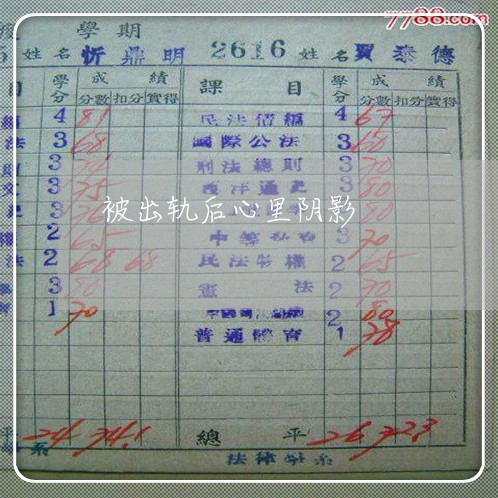 7788.com
學期
5 姓名 忻鼎明 2616 姓名 賈泰德
目 學分 成績 課目 學分 成績
分數 扣分 實得 分數 扣分 實得
編 4 81 民法債編 4 67
法 3 68 國際公法 3 60
則 3 刑法總則 3 70
3 75 西洋通史 3 80
被出轨后心里阴影
史 3 3 80
2 65 3 70
法 2 68 68 民法物權 2 65
3 80 憲法 2 70
育 1 70 2 80
普通體育 1 78
平 24 74.1 總平 26 72.3
系 法律學系